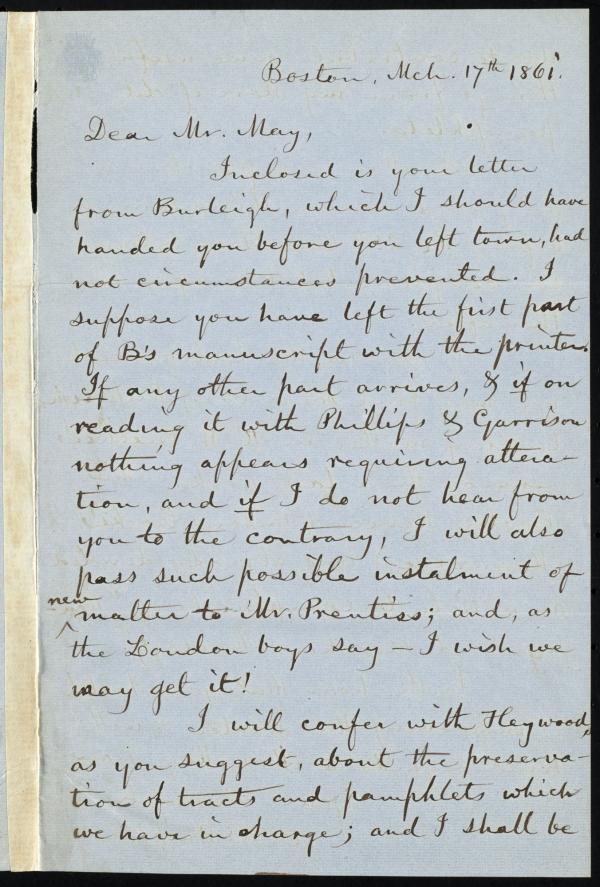 Boston, Mch. 17th 1861.
Dear Mr. May,
Inclosed is your letter
from Burleigh, which I should have
handed you before you left town, had
not circumstances prevented. I
suppose you have left the first part
of B's manuscript with the printer.
If any other part arrives, & if on
reading it with Phillips & Garrison
nothing appears requiring altera-
tion, and if I do not hear from
you to the contrary, I will also
pass such possible instalment of
new
matter to Mr. Prentiss; and, as
the London boys say — I wish we
may get it!
I will confer with Heywood,
as you suggest, about the preserva-
tion of tracts and pamphlets which
we have in charge; and I shall be